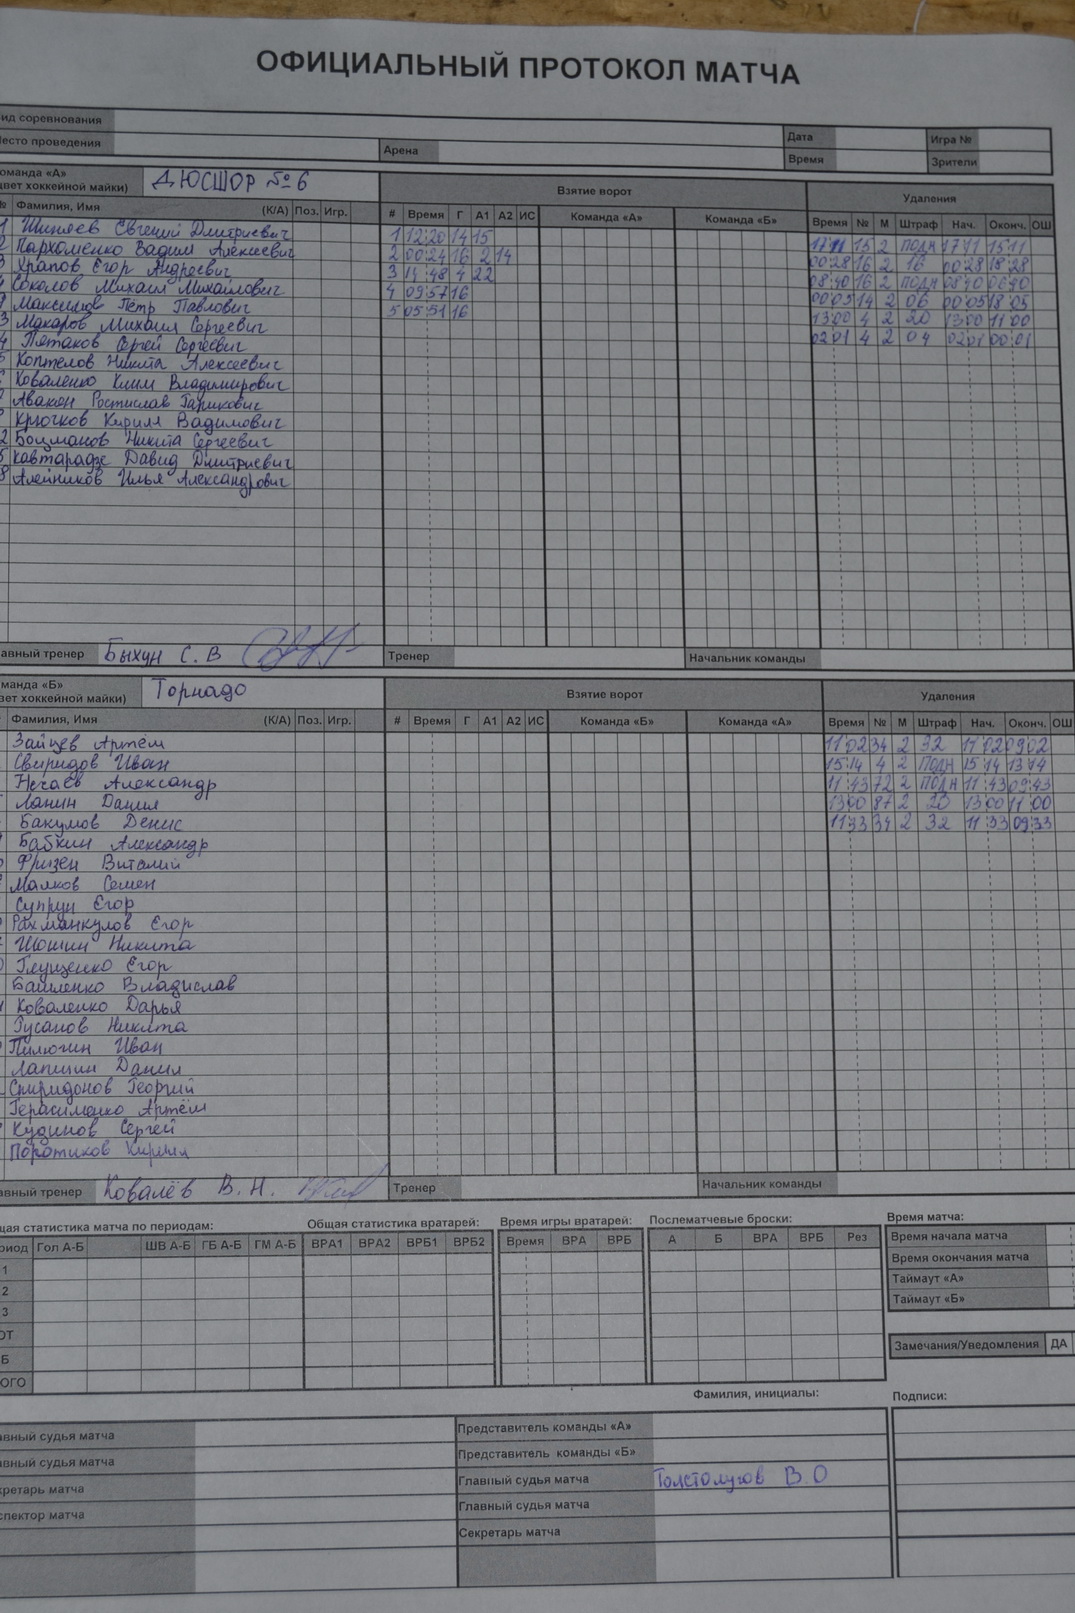 ОФИЦИАЛЬНЫЙ ПРОТОКОЛ МАТЧА
ид соревнования
есто проведения Арена Дата Игра №
Время Зрители
оманда «А» ДЮСШОР №6 Взятие ворот Удаления
цвет хоккейной майки)
Фамилия, Имя (К/А) Поз. Игр. # Время Г А1 А2 ИС Команда «А» Команда «Б» Время № М Штраф Нач. Оконч. ОШ
Шиляев Евгений Дмитриевич 1 12:20 14 15 17 11 15 2 ПОДН 17 11 15:11
Пархоменко Вадим Алексеевич 2 00:24 16 2 14 00:28 16 2 16 00:28 18:28
Храпов Егор Андреевич 3 14:48 4 22 08:40 16 2 ПОДН 08:40 06:40
Соколов Михаил Михайлович 4 09:57 16 00:05 14 2 06 00:05 18:05
Максимов Пётр Павлович 5 05:51 16 13:00 4 2 20 13:00 11:00
Макаров Михаил Сергеевич 02:01 4 2 04 02:01 00:01
Пятаков Сергей Сергеевич
Коптелов Никита Алексеевич
Коваленко Клим Владимирович
Авакян Ростислав Гарикович
Крючков Кирилл Вадимович
Боцманов Никита Сергеевич
Кавтарадзе Давид Дмитриевич
Алейников Илья Александрович
авный тренер Быхун С. В Тренер Начальник команды
манда «Б» Торнадо Взятие ворот Удаления
вет хоккейной майки)
Фамилия, Имя (К/А) Поз. Игр. # Время Г А1 А2 ИС Команда «Б» Команда «А» Время № М Штраф Нач. Оконч. ОШ
Зайцев Артём 11 02 34 2 32 11 02 09 02
Свиридов Иван 15:14 4 2 ПОДН 15:14 13 14
Нечаев Александр 11:43 72 2 ПОДН 11:43 09:43
Ланин Данил 13 00 87 2 20 13:00 11:00
Бакумов Денис 11 33 34 2 32 11:33 09:33
Бабкин Александр
Фризен Виталий
Малков Семен
Супрун Егор
Рахманкулов Егор
Шошин Никита
Глущенко Егор
Башленко Владислав
Коваленко Дарья
Гусаков Никита
Пилюгин Иван
Лапшин Данил
Спиридонов Георгий
Герасименко Артём
Кудинов Сергей
Поротиков Кирилл
авный тренер Ковалёв В. Н. Тренер Начальник команды
щая статистика матча по периодам: Общая статистика вратарей: Время игры вратарей: Послематчевые броски: Время матча:
риод Гол А-Б ШВ А-Б ГБ А-Б ГМ А-Б ВРА1 ВРА2 ВРБ1 ВРБ2 Время ВРА ВРБ А Б ВРА ВРБ Рез Время начала матча
1 Время окончания матча
2 Таймаут «А»
3 Таймаут «Б»
ОТ
Б Замечания/Уведомления ДА
ОГО
Фамилия, инициалы: Подписи:
авный судья матча Представитель команды «А»
авный судья матча Представитель команды «Б»
кретарь матча Главный судья матча Толстолугов В.О
спектор матча Главный судья матча
Секретарь матча